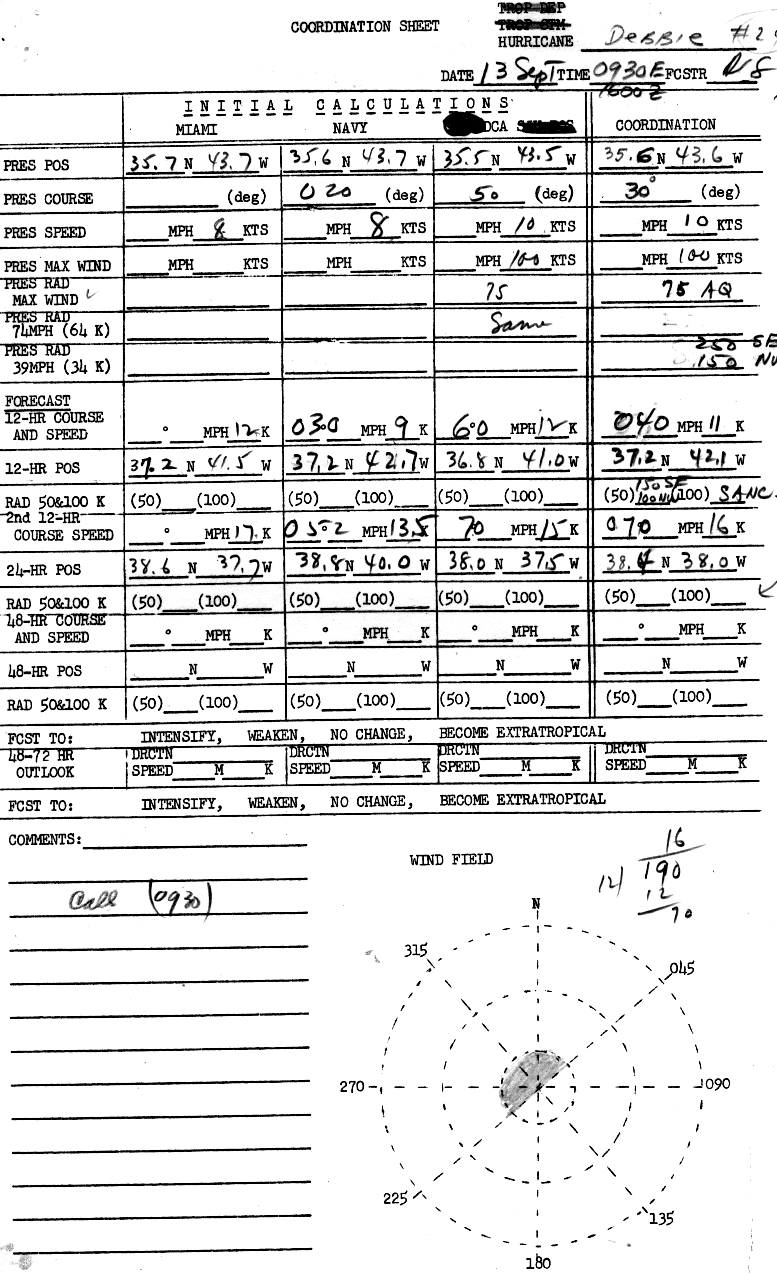 COORDINATION SHEET
TROP DEP
TROP STM
HURRICANE Debbie #2
DATE 13 Sept TIME 0930E FCSTR
1600Z
INITIAL CALCULATIONS
MIAMI NAVY DCA COORDINATION
PRES POS 35.7 N 43.7 W 35.6 N 43.7 W 35.5 N 43.5 W 35.6 N 43.6 W
PRES COURSE (deg) 020 (deg) 50 (deg) 30° (deg)
PRES SPEED MPH 8 KTS MPH 8 KTS MPH 10 KTS MPH 10 KTS
PRES MAX WIND MPH KTS MPH KTS MPH 100 KTS MPH 100 KTS
PRES RAD
MAX WIND ✓ 75 75 AQ
PRES RAD
74MPH (64 K) Same
PRES RAD 250 SE
39MPH (34 K) 150 NW
FORECAST
12-HR COURSE
AND SPEED ° MPH 12 K 030 MPH 9 K 60 MPH 12 K 040 MPH 11 K
12-HR POS 37.2 N 41.5 W 37.2 N 42.7 W 36.8 N 41.0 W 37.2 N 42.1 W
150 SE
RAD 50&100 K (50) (100) (50) (100) (50) (100) (50) 100 NW (100) SANC.
2nd 12-HR
COURSE SPEED ° MPH 17 K 05°2 MPH 13.5 70 MPH 15 K 070 MPH 16 K
24-HR POS 38.6 N 37.7 W 38.8 N 40.0 W 38.0 N 37.5 W 38.4 N 38.0 W
RAD 50&100 K (50) (100) (50) (100) (50) (100) (50) (100)
48-HR COURSE
AND SPEED ° MPH K ° MPH K ° MPH K ° MPH K
48-HR POS N W N W N W N W
RAD 50&100 K (50) (100) (50) (100) (50) (100) (50) (100)
FCST TO: INTENSIFY, WEAKEN, NO CHANGE, BECOME EXTRATROPICAL
48-72 HR DRCTN DRCTN DRCTN DRCTN
OUTLOOK SPEED M K SPEED M K SPEED M K SPEED M K
FCST TO: INTENSIFY, WEAKEN, NO CHANGE, BECOME EXTRATROPICAL
COMMENTS:
16
WIND FIELD
12) 190
12
70
Call (0930)
N
315
045
270
090
225
135
180